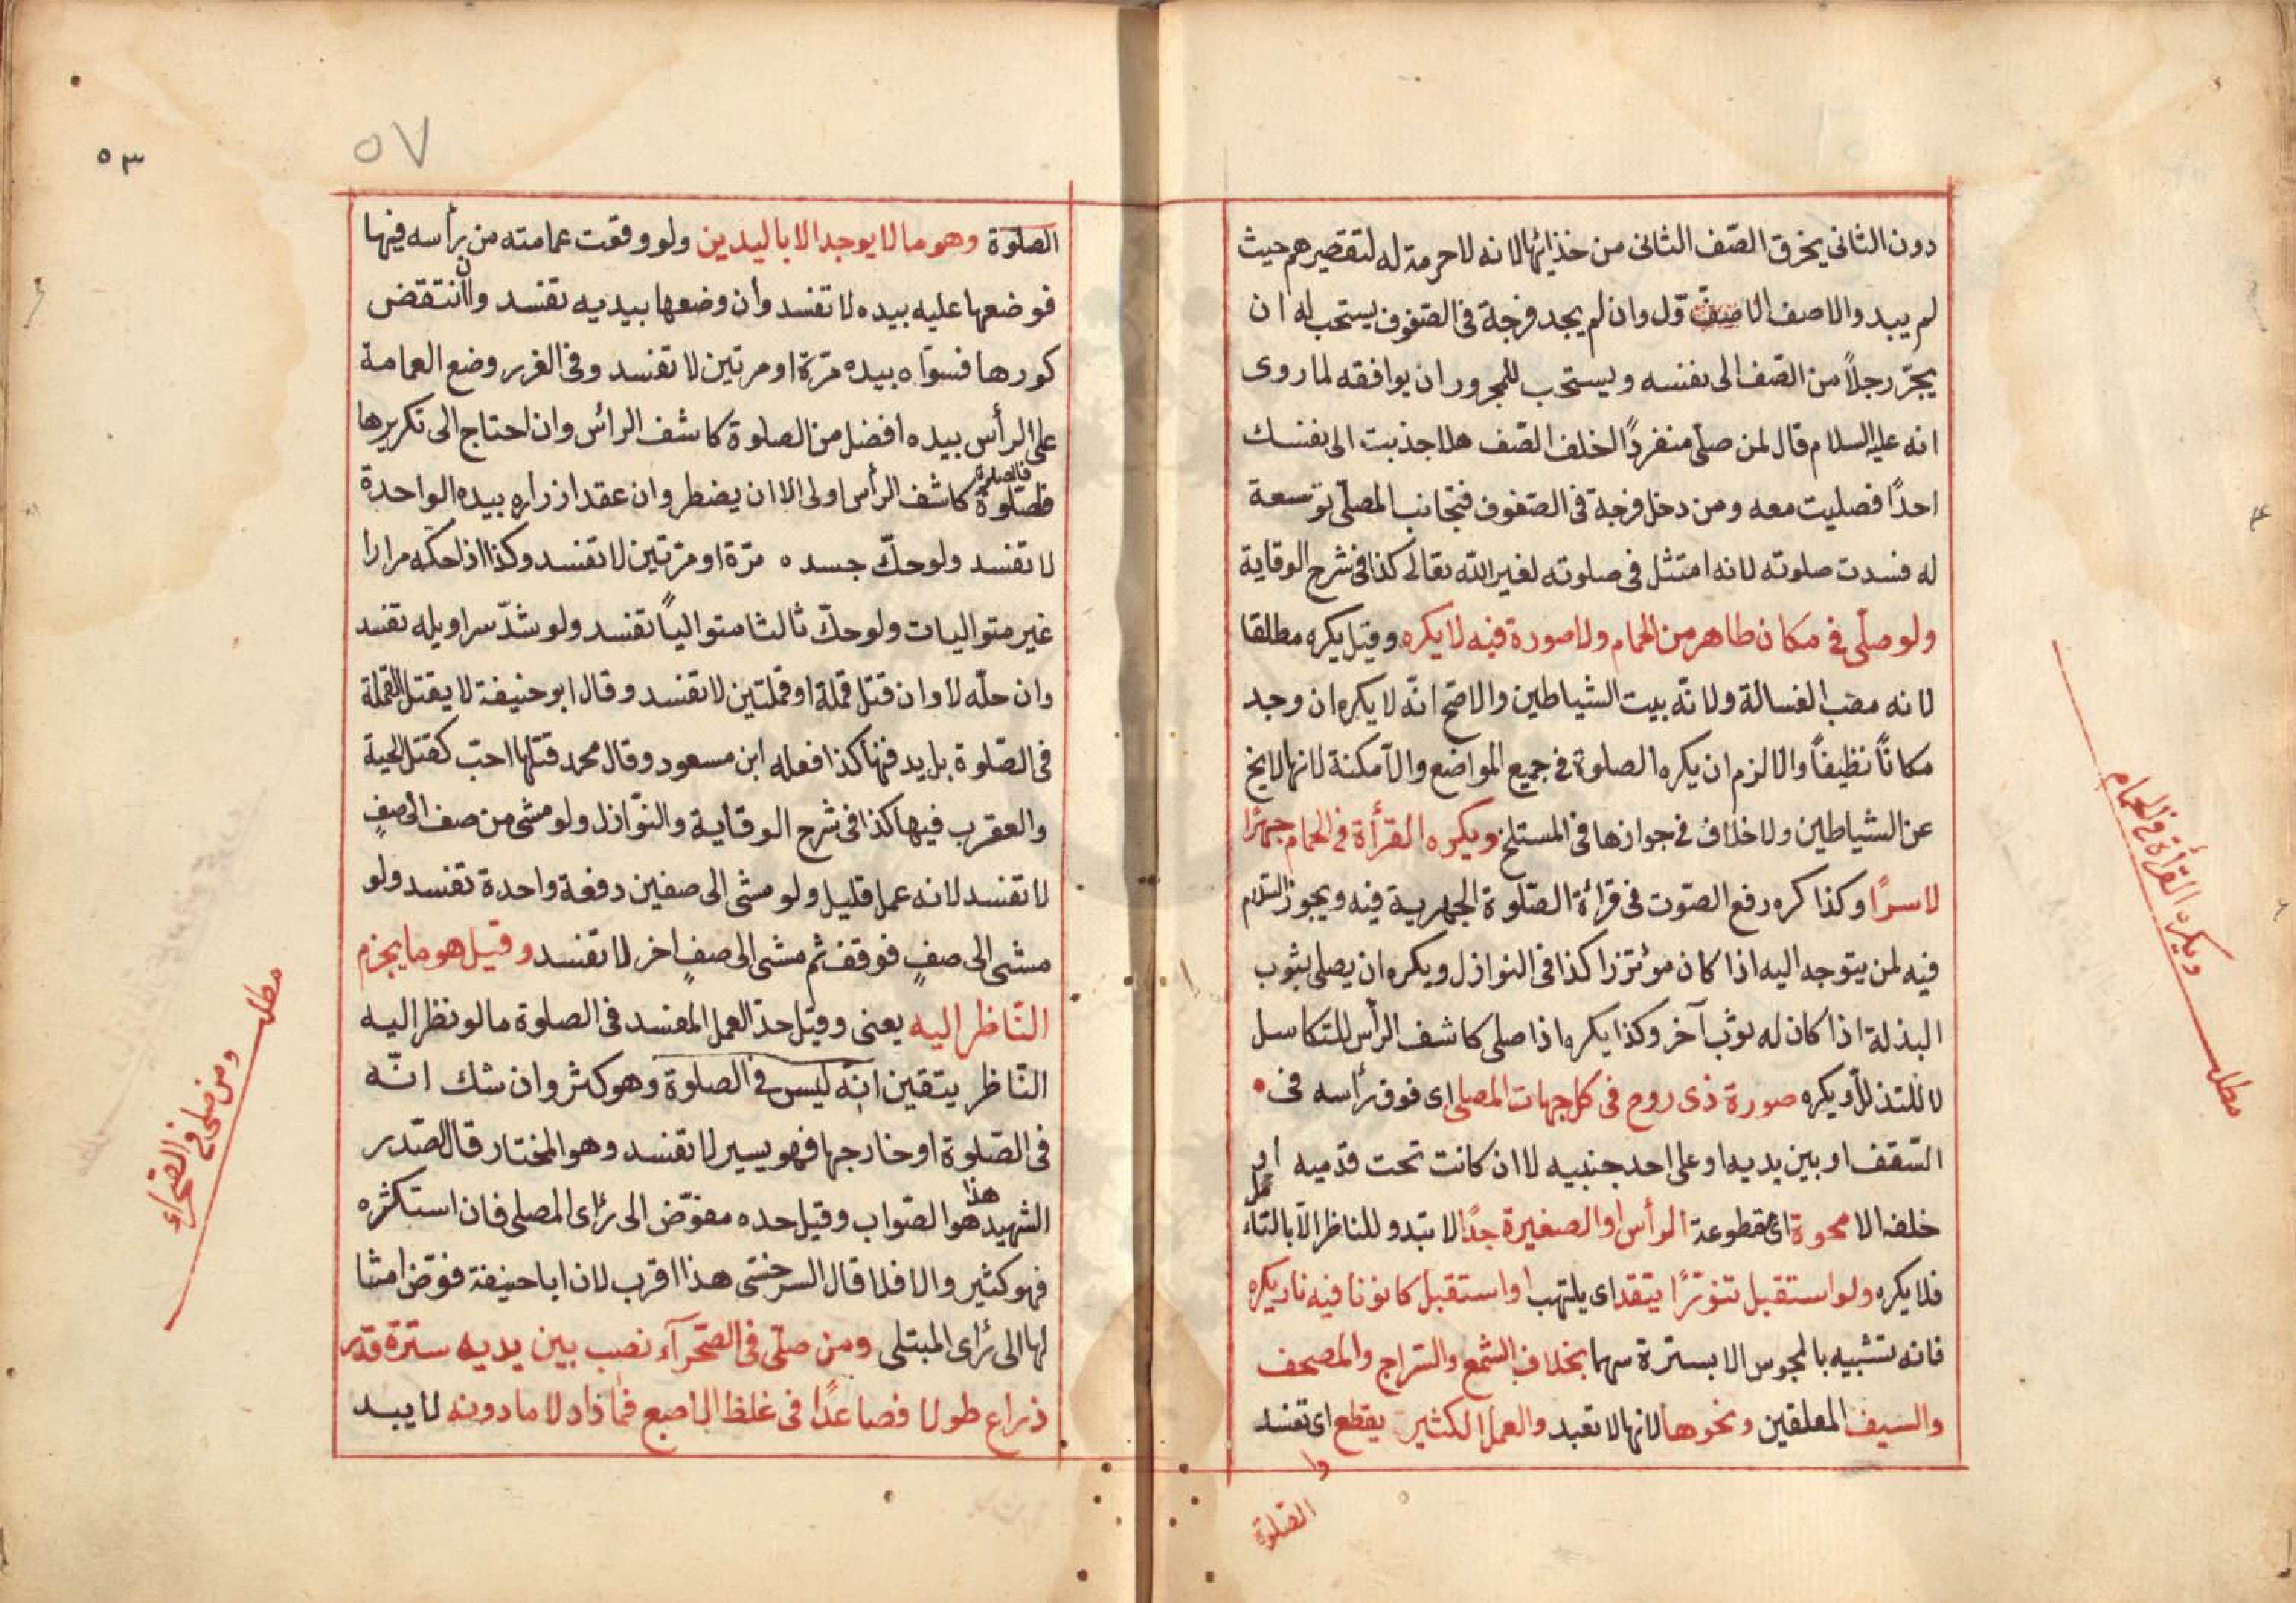 دون الثانى يخرق الصّف الثانى من حذائها لانه لا حرمة له لتقصيرهم حيث
لم يسدوا الاصف الاول وان لم يجد فرجة فى الصفوف يستحب له ان
يجرّ رجلاً من الصّف الى نفسه ويستحب للمجرور ان يوافقه لما روى
انه عليه السلام قال لمن صلّى منفرداً الخلف الصّف هلا جذبت الى نفسك
احدًا فصليت معه ومن دخل فرجة فى الصفوف فتجانب المصلّى توسعة
له فسدت صلوته لانه امتثل فى صلوته لغير الله تعالى كذا فى شرح الوقاية
ولو صلّى فى مكان طاهر من الحمام ولا صورة فيه لا يكره وقيل يكره مطلقا
لانه مصب الغسالة ولانّه بيت الشياطين والاصح انّه لا يكره ان وجد
مكاناً نظيفاً والا لزم ان يكره الصلوة فى جميع المواضع والآمكنة لانها لا يخ
عن الشياطين ولا خلاف فى جوازها فى المسلخ ويكره القرأة فى الحمام جهرًا
لا سرًا وكذا كره رفع الصّوت فى قرائة الصّلوة الجهرية فيه ويجوز السّلام
فيه لمن يتوجه اليه اذا كان مؤتزرا كذا فى النوازل ويكره ان يصلى بثوب
البذلة اذا كان له ثوب آخر وكذا يكره اذا صلى كاشف الرأس للتكاسل
لا للتذلل ويكره صورة ذى روح فى كل جهات المصلى اى فوق رأسه فى
السّقف او بين يديه او على احد جنبيه لا ان كانت تحت قدميه او
خلفه الا ممحوة اى مقطوعة الرأس او الصغيرة جدًا لا تبدو للناظر الّا بالتأمل
فلا يكره ولو استقبل تنورًا يتقد اى يلتهب او استقبل كانونا فيه نار يكره
فانه تشبيه بالمجوس الا بسترة سهما بخلاف الشمع والسّراج والمصحف
والسيف المعلقين ونحوها لانها لا تعبد والعمل الكثير يقطع اى تفسد
الصّلوة
ويكره القرأة فى الحمام
مطلب
٥٣
٥٧
الصّلوة وهو مالا يوجد الا باليدين ولو وقعت عمامته من رأسه فيها
فوضعها عليه بيده لا تفسد وان وضعها بيديه تفسد وان انتقض
كورها فسوّاه بيده مرّة او مرتين لا تفسد وفى الغرر وضع العمامة
على الرأس بيده افضل من الصلوة كاشف الرائس وان احتاج الى تكريرها
فالصلوة كاشف الرأس اولى الا ان يضطر وان عقد ازراره بيده الواحدة
لا تفسد ولو حكّ جسده مرّة او مرّتين لا تفسد وكذا اذا حكه مرارا
غير متواليات ولو حكّ ثالثا متوالياً تفسد ولو شدّ سراويله تفسد
وان حلّه لا وان قتل قملة او قملتين لا تفسد وقال ابو حنيفة لا يقتل القملة
فى الصّلوة بل يدفنها كذا فعله ابن مسعود وقال محمد قتلها احبّ كقتل الحية
والعقرب فيها كذا فى شرح الوقاية والنّوازل ولو مشى من صف الى صفٍ
لا تفسد لانه عمل قليل ولو مشى الى صفين دفعة واحدة تفسد ولو
مشى الى صفٍ فوقف ثم مشى الى صفٍ اخر لا تفسد وقيل هو ما يجزم
النّاظر اليه يعنى وقيل حدّ العمل المفسد فى الصلوة ما لو نظر اليه
النّاظر يتقين انّه ليس فى الصلوة وهو كثر وان شك انّه
فى الصّلوة او خارجها فهو يسير لا تفسد وهو المختار قال الصّدر
الشهيد هذا هو الصّواب وقيل حده مفوّض الى رئاى المصلى فان استكثره
فهو كثير والا فلا قال السرخسى هذا اقرب لان ابا حنيفة فوّض امثا
لها الى رئاى المبتلى ومن صلّى فى الصّحرآء نصب بين يديه سترة قدر
ذراع طولا فصاعدًا فى غلظ الاصبع فما زاد لا ما دونه لا يبد
مطلب
ومن صلى فى الصّحراء